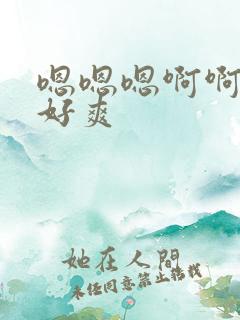 嗯嗯嗯啊啊
好爽
她在人間
未经同意禁止搭载